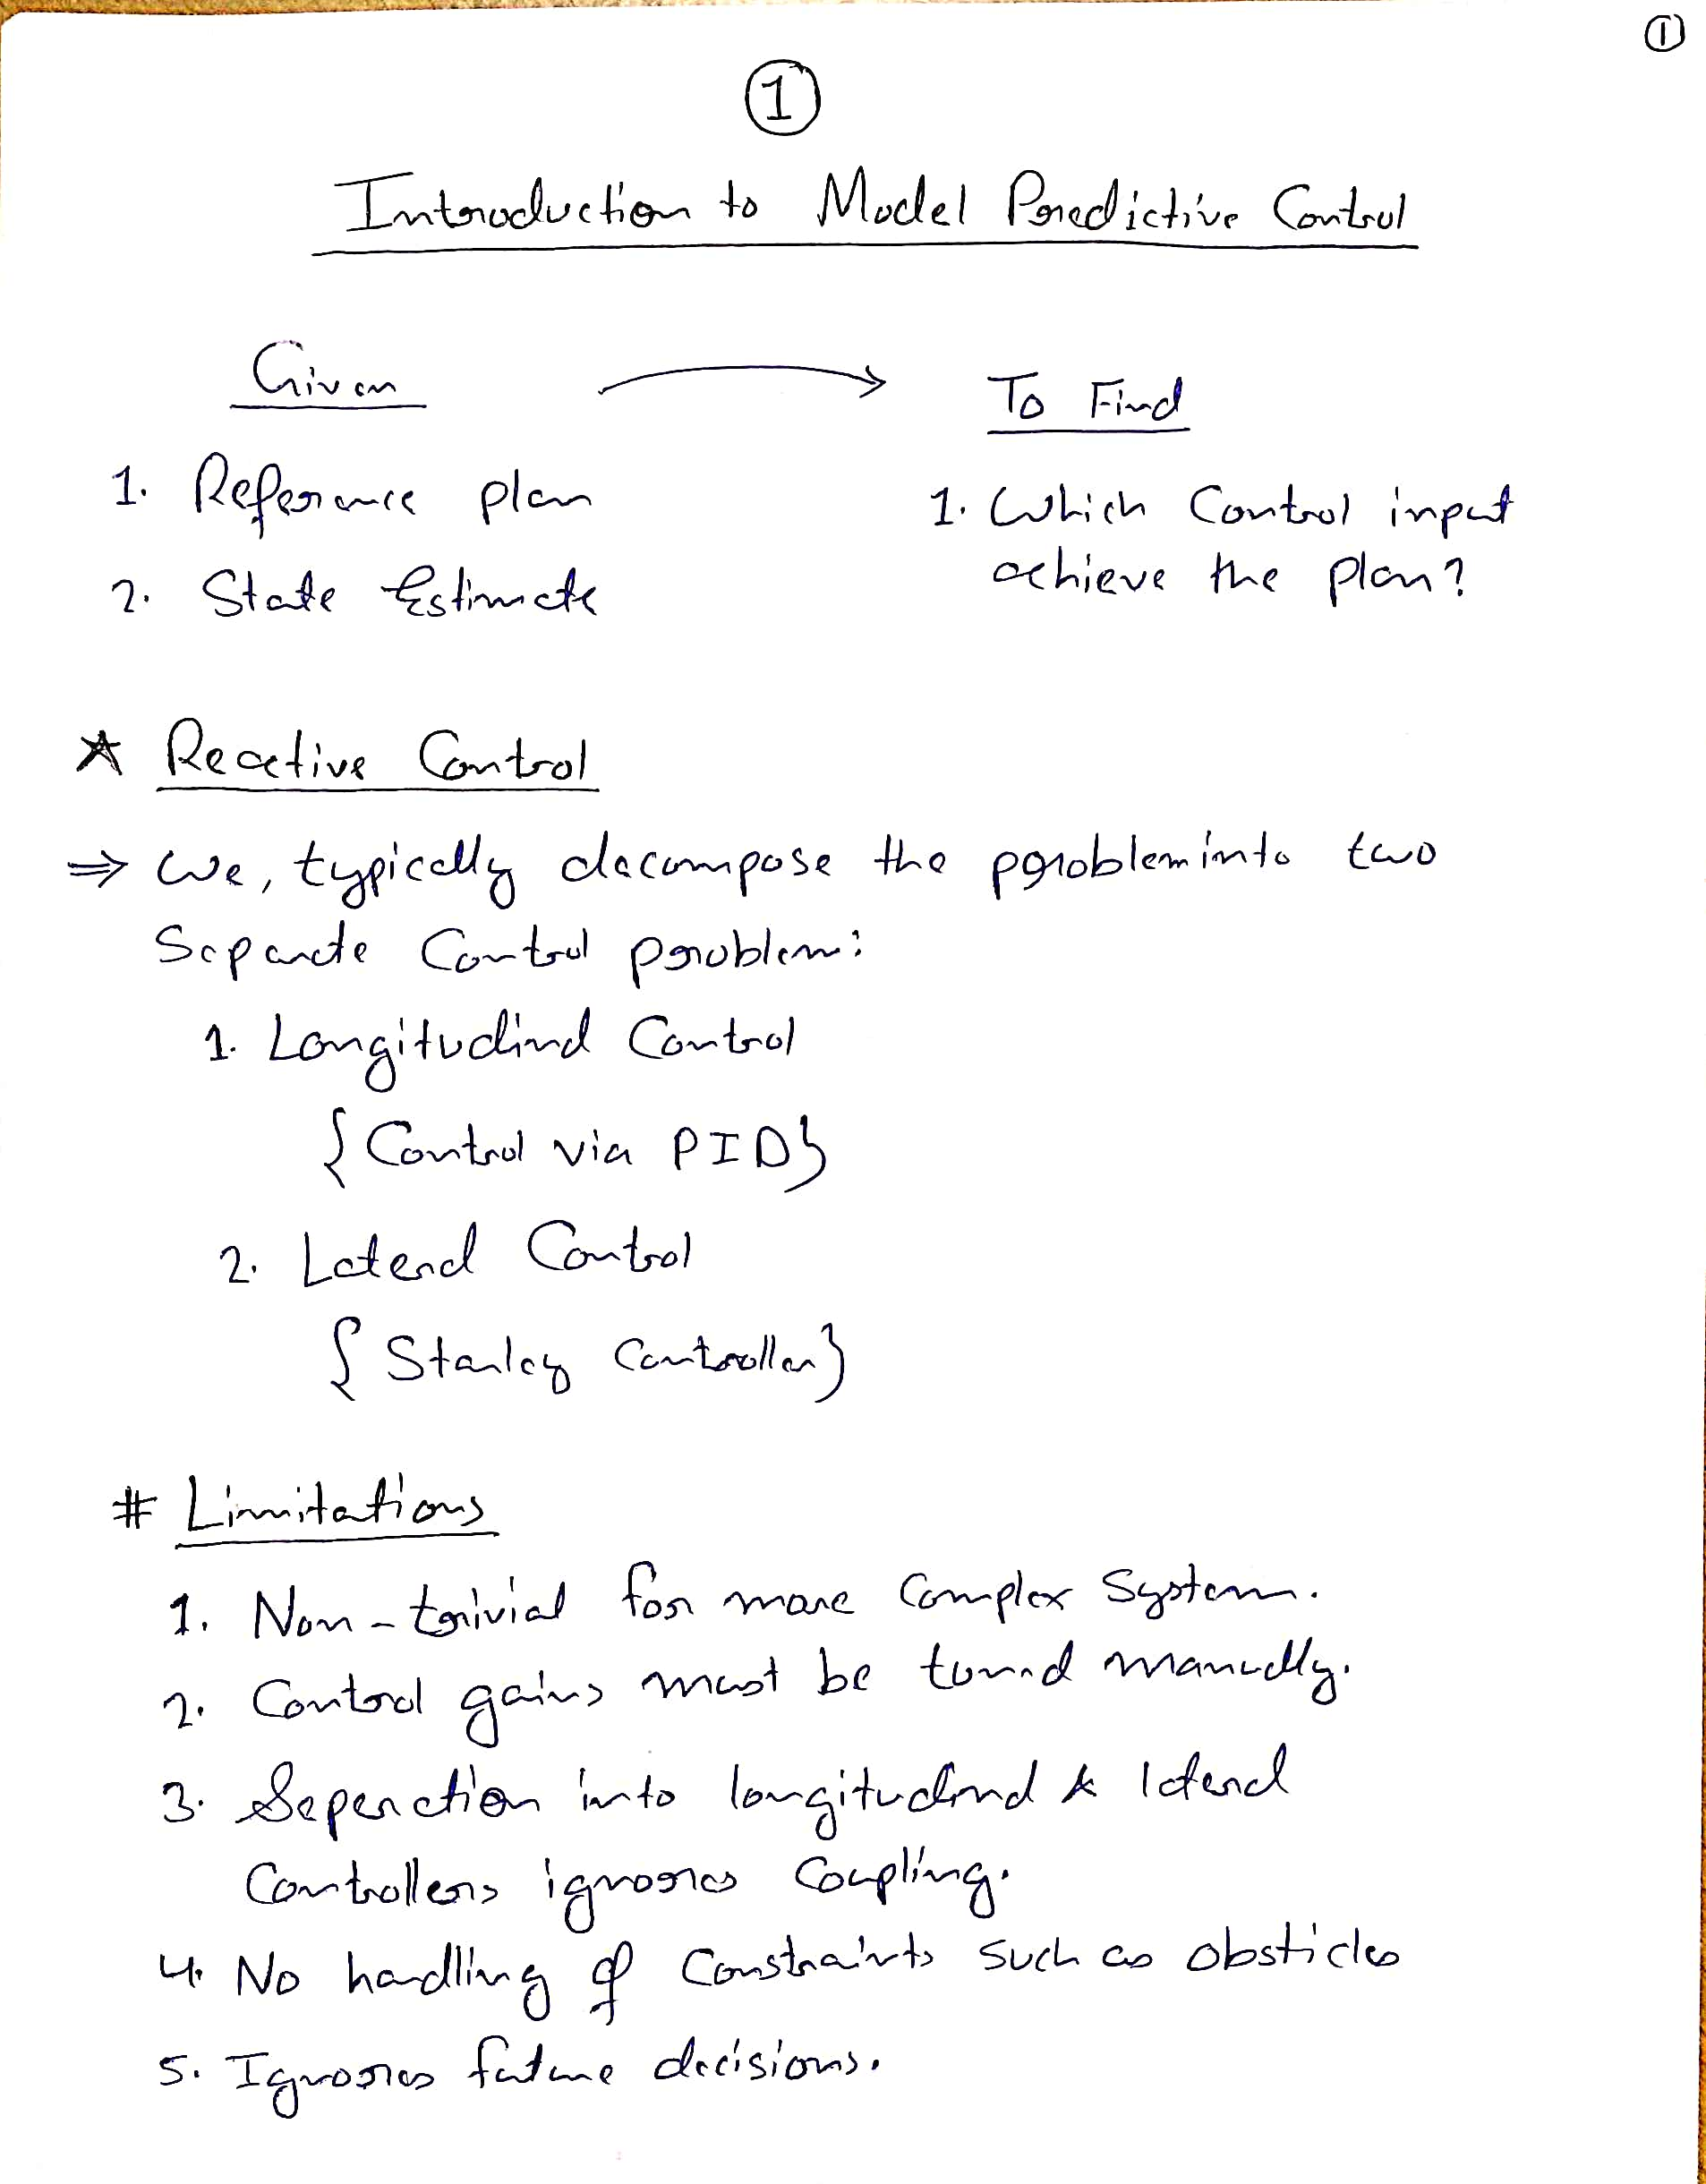 ①
①
Introduction to Model Predictive Control
Given → To Find
1. Reference plan
2. State Estimate
1. Which Control input
achieve the plan?
☆ Reactive Control
⇒ We, typically decompose the problem into two
Separate Control problem:
1. Longitudinal Control
{Control via PID}
2. Lateral Control
{Stanley Controller}
# Limitations
1. Non-trivial for more Complex System.
2. Control gains must be tuned manually.
3. Seperation into longitudinal & lateral
Controllers ignores Coupling.
4. No handling of Constraints such as obsticles
5. Ignores future decisions.